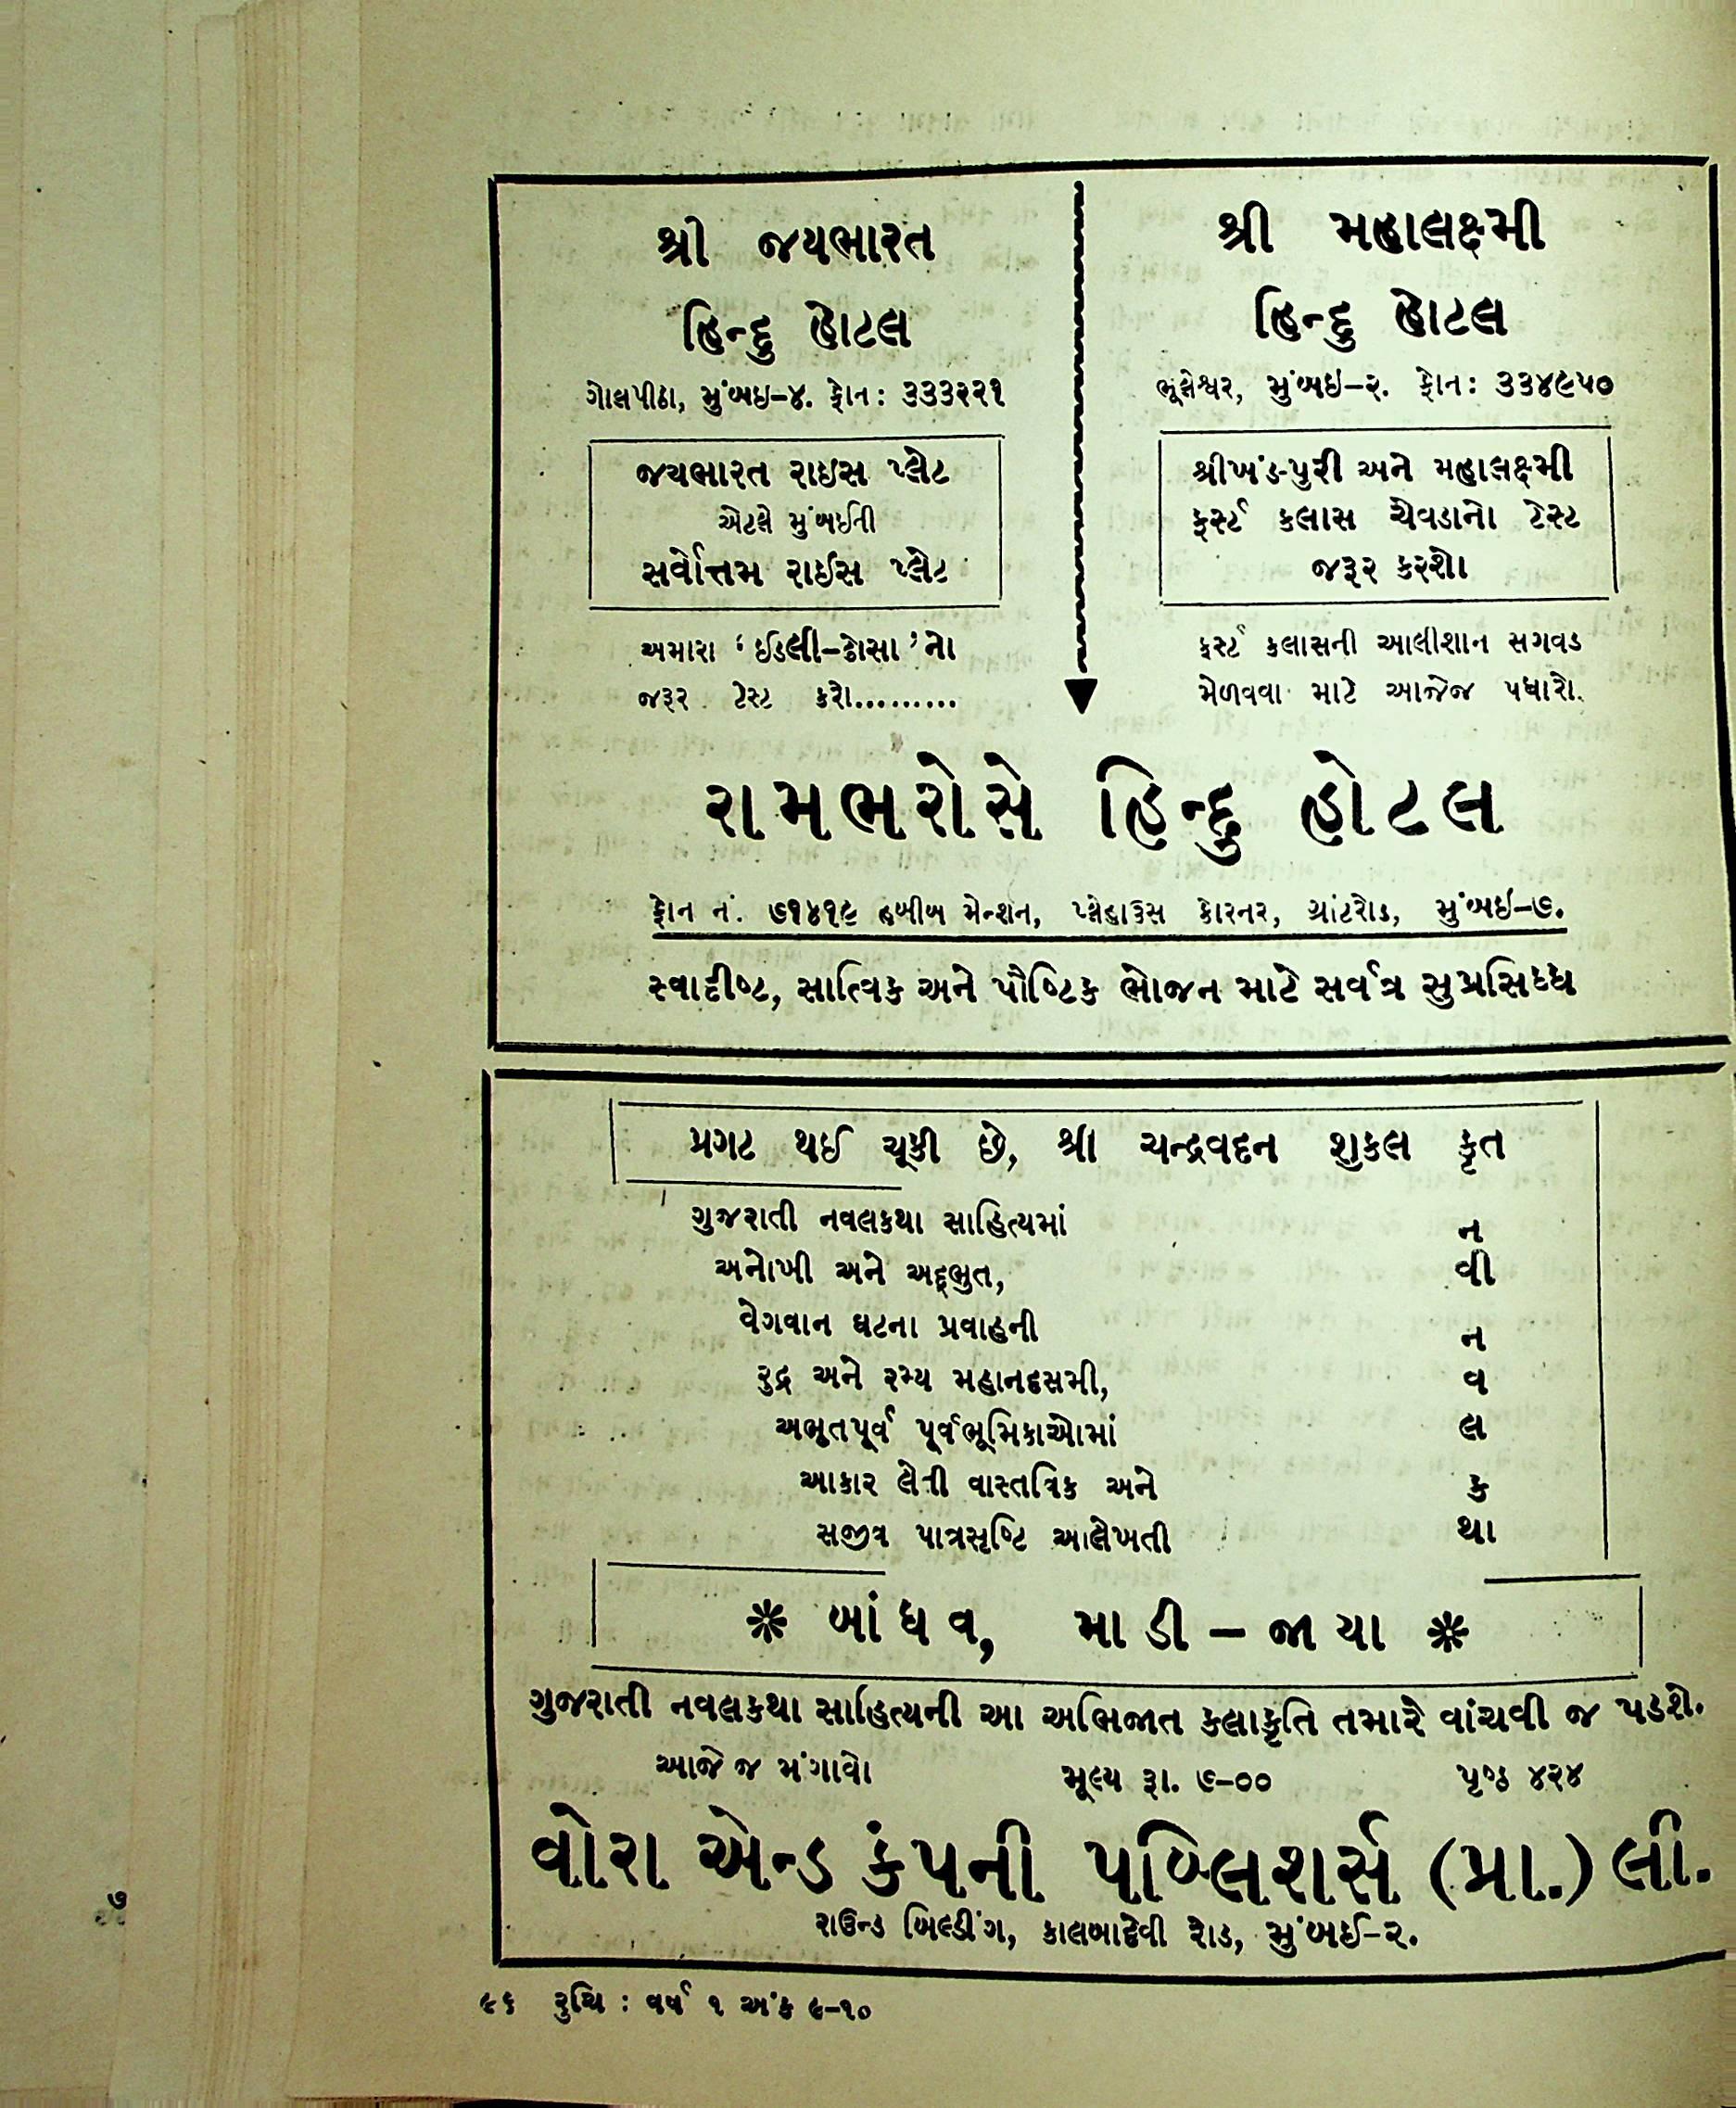 શ્રી જયભારત
હિન્દુ હોટલ
ગોલપીઠા, મુંબઇ-૪. ફોન: ૩૩૩૨૨૧
જયભારત રાઇસ પ્લેટ
એટલે મુંબઈની
સર્વોત્તમ રાઈસ પ્લેટ
અમારા ‘ઈડલી-ઢોસા’નો
જરૂર ટેસ્ટ કરો.........
શ્રી મહાલક્ષ્મી
હિન્દુ હોટલ
ભૂલેશ્વર, મુંબઇ-૨. ફોન: ૩૩૪૯૫૦
શ્રીખંડ-પુરી અને મહાલક્ષ્મી
ફર્સ્ટ કલાસ ચેવડાનો ટેસ્ટ
જરૂર કરશો
ફર્સ્ટ કલાસની આલીશાન સગવડ
મેળવવા માટે આજેજ પધારો.
રામભરોસે હિન્દુ હોટલ
ફોન નં. ૭૧૪૧૯ હબીબ મેન્શન, પ્લેહાઉસ કોરનર, ગ્રાંટરોડ, મુંબઇ-૭.
સ્વાદીષ્ટ, સાત્વિક અને પૌષ્ટિક ભોજન માટે સર્વત્ર સુપ્રસિધ્ધ
પ્રગટ થઈ ચૂકી છે, શ્રી ચન્દ્રવદન શુકલ કૃત
ગુજરાતી નવલકથા સાહિત્યમાં
અનોખી અને અદ્દભુત,
વેગવાન ઘટના પ્રવાહની
રુદ્ર અને રમ્ય મહાનદસમી,
અભુતપૂર્વ પૂર્વભૂમિકાઓમાં
આકાર લેતી વાસ્તવિક અને
સજીવ પાત્રસૃષ્ટિ આલેખતી
ન
વી
ન
વ
લ
ક
થા
* બાંધવ, માડી – જાયા *
ગુજરાતી નવલકથા સાહિત્યની આ અભિજાત કલાકૃતિ તમારે વાંચવી જ પડશે.
આજે જ મંગાવો મૂલ્ય રૂા. ૭-૦૦ પૃષ્ઠ ૪૨૪
વોરા એન્ડ કંપની પબ્લિશર્સ (પ્રા.) લી.
રાઉન્ડ બિલ્ડીંગ, કાલબાદેવી રોડ, મુંબઈ-૨.
૯૬ રુચિ : વર્ષ ૧ અંક ૯-૧૦
૭